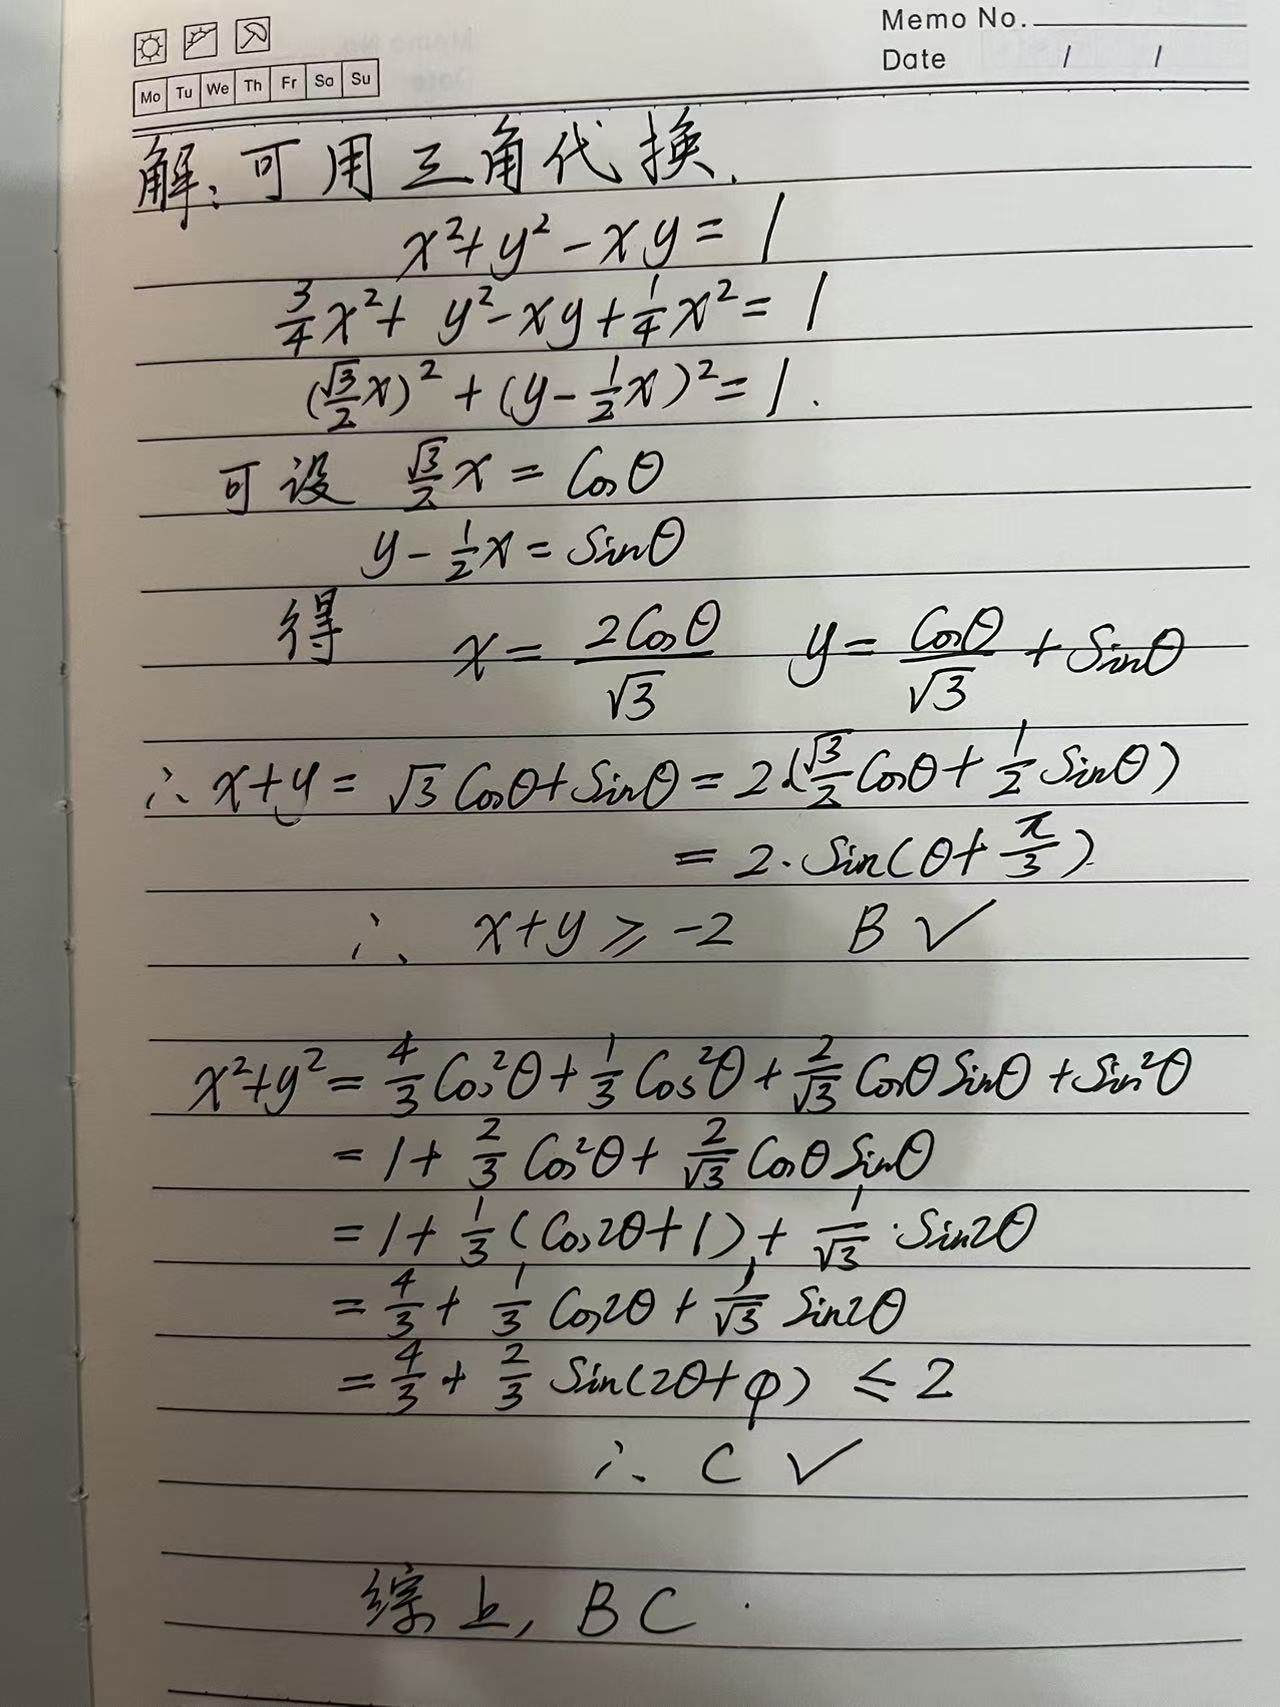 Memo No.
Date / /
Mo Tu We Th Fr Sa Su
解:可用三角代换.
x²+y²-xy=1
3/4x²+y²-xy+1/4x²=1
(√3/2x)²+(y-1/2x)²=1.
可设 √3/2x=Cosθ
y-1/2x=Sinθ
得 x=2Cosθ/√3 y=Cosθ/√3+Sinθ
∴x+y=√3Cosθ+Sinθ=2(√3/2Cosθ+1/2Sinθ)
=2·Sin(θ+π/3)
∴ x+y≥-2 B✓
x²+y²=4/3Cos²θ+1/3Cos²θ+2/√3CosθSinθ+Sin²θ
=1+2/3Cos²θ+2/√3CosθSinθ
=1+1/3(Cos2θ+1)+1/√3·Sin2θ
=4/3+1/3Cos2θ+1/√3Sin2θ
=4/3+2/3Sin(2θ+φ)≤2
∴ C✓
综上,BC.